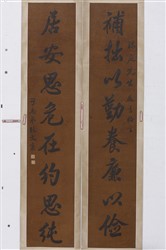 補拙以勤養廉以儉
居安思危在約思純